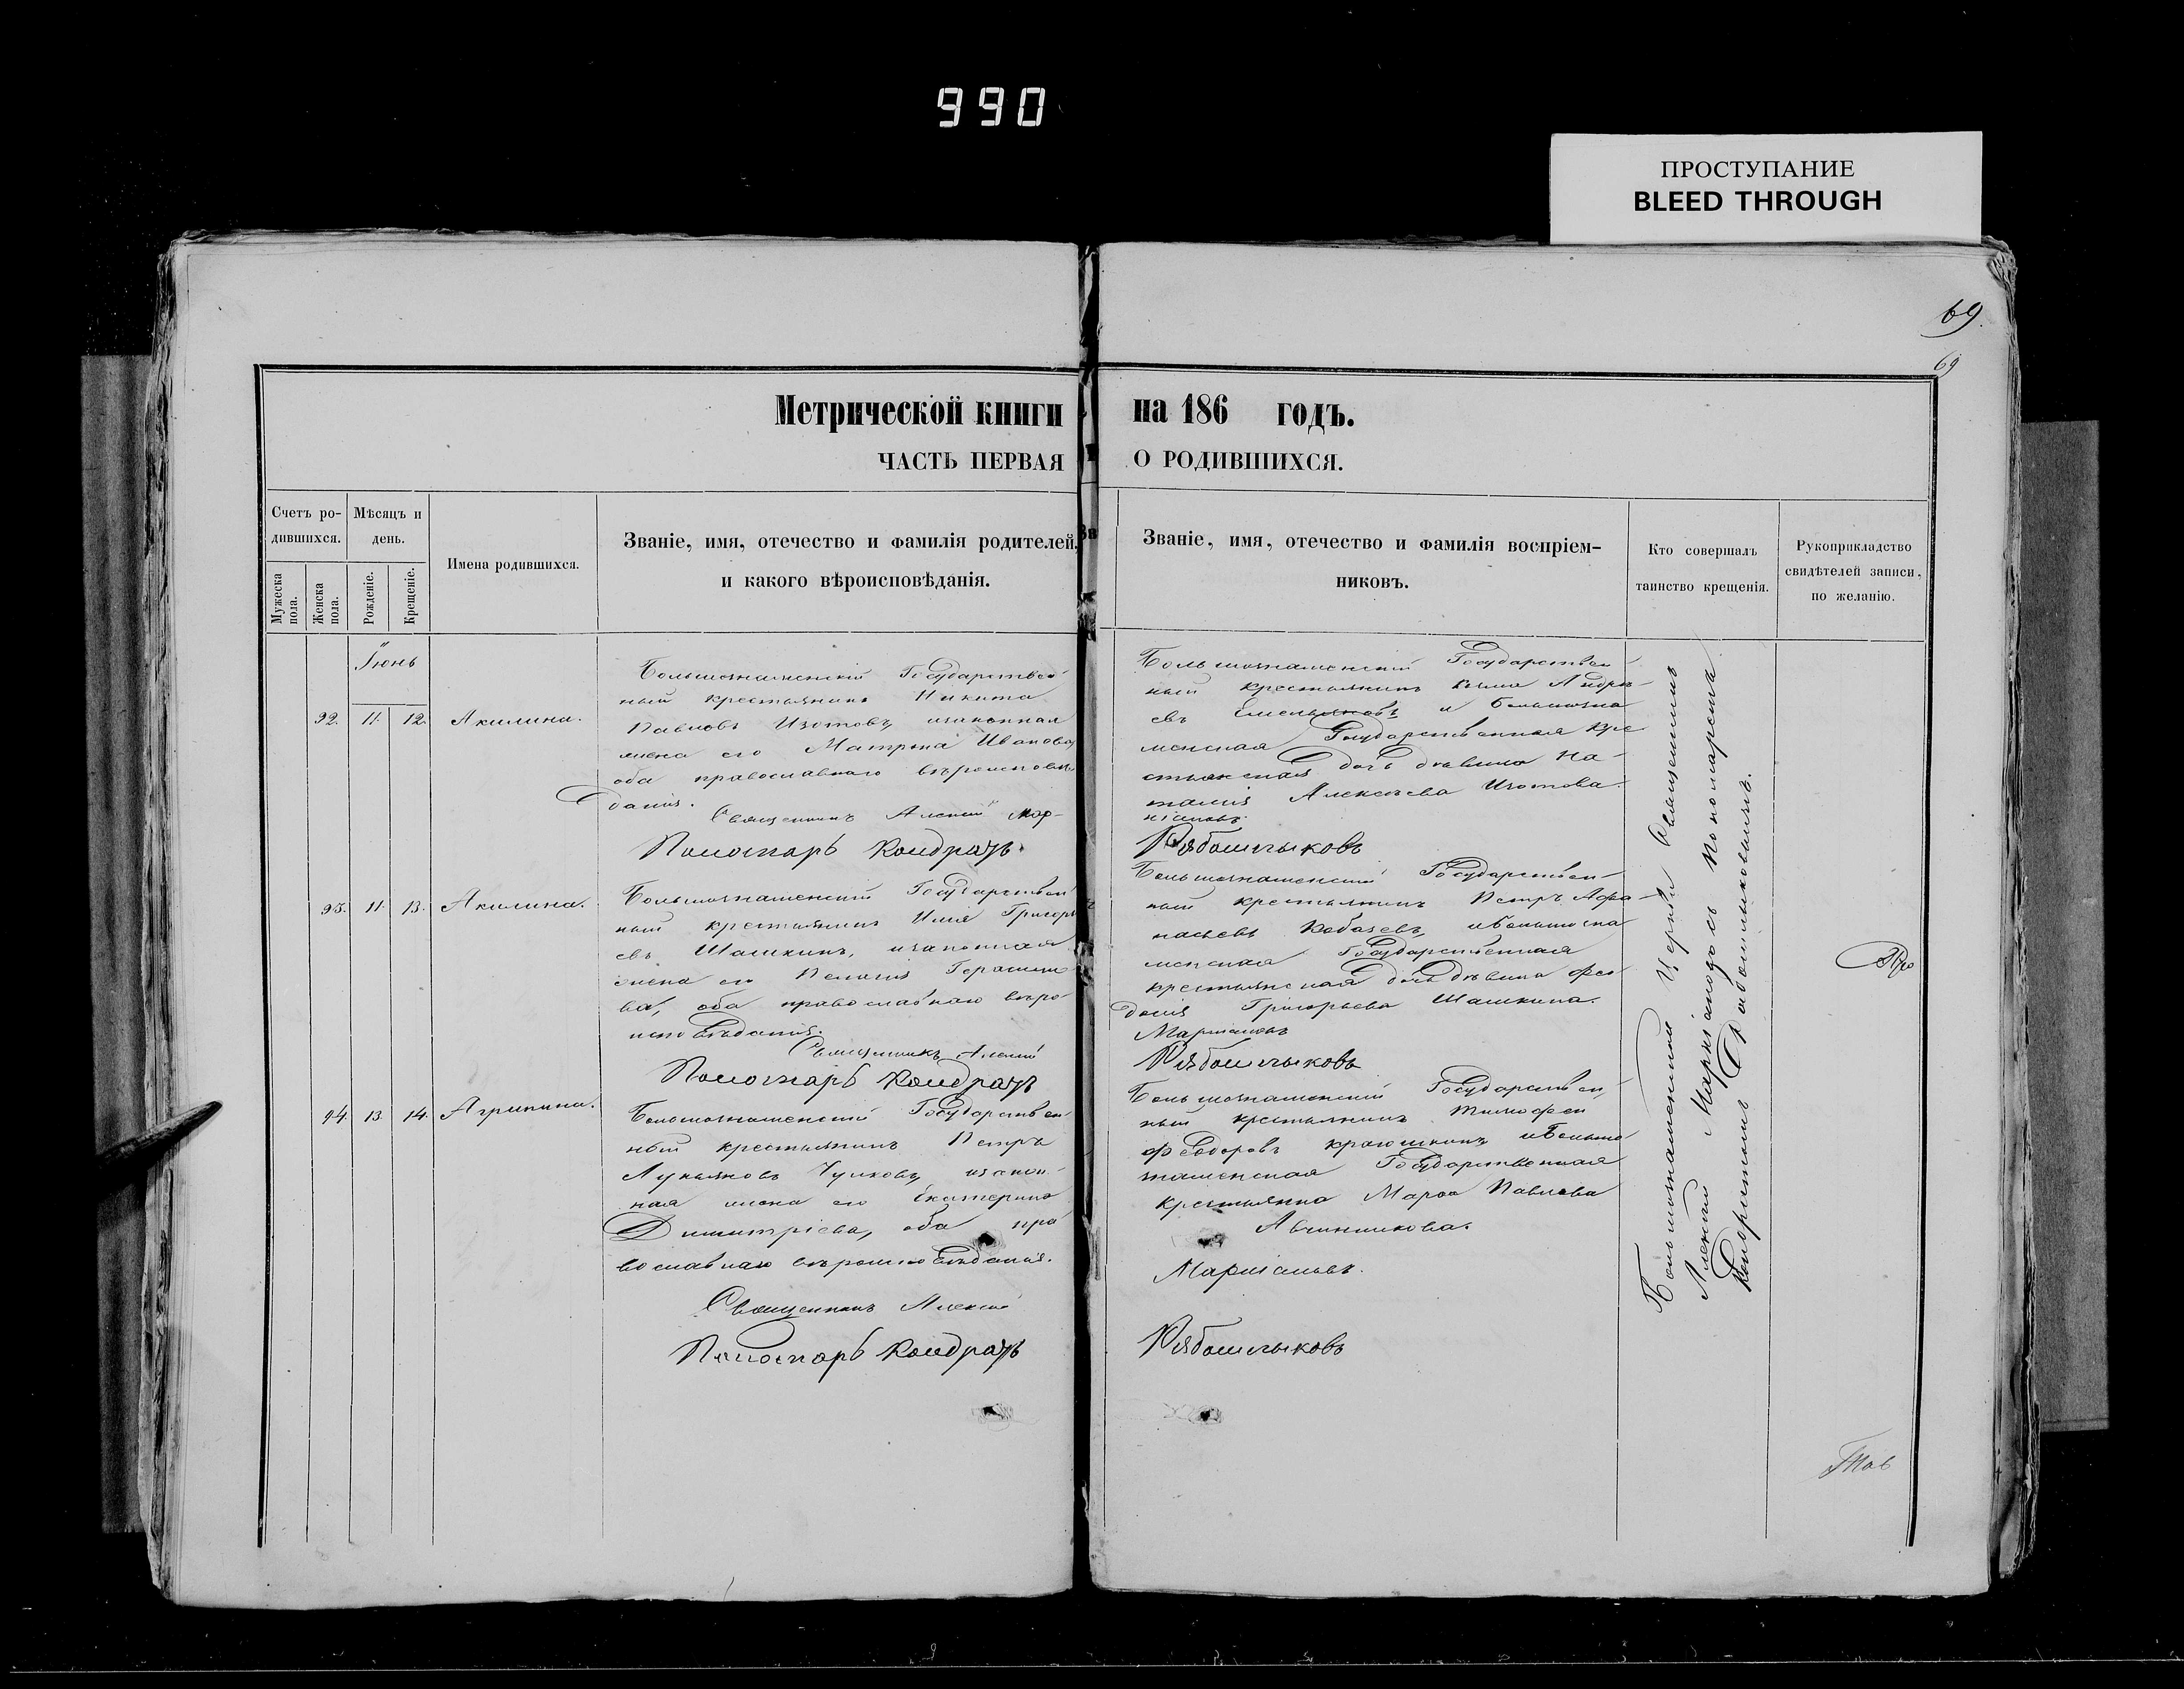 990
ПРОСТУПАНИЕ
BLEED THROUGH
69.
69
Метрической книги на 186 годъ.
ЧАСТЬ ПЕРВАЯ О РОДИВШИХСЯ.
Счетъ ро-
дившихся.
Мужеска
пола.
Женска
пола.
Мѣсяцъ и
день.
Рожденіе.
Крещеніе.
Имена родившихся.
Званіе, имя, отечество и фамилія родителей,
и какого вѣроисповѣданія.
Званіе, имя, отечество и фамилія воспріем-
никовъ.
Кто совершалъ
таинство крещенія.
Рукоприкладство
свидѣтелей записи,
по желанію.
Іюнь
92. 11. 12. Акилина.
Большезнаменскій Государствен-
ный крестьянинъ Никита
Павловъ Изотовъ, изаконная
жена его Матрона Иванова,
оба православнаго вѣроисповѣ-
данія.
Священникъ Алексій Мар-
Пономарь Кондратъ
Большезнаменскій Государствен-
ный крестьянинъ Козма Андре-
евъ Емельяновъ и Большезна-
менская Государственная кре-
стьянская дочь дѣвица На-
талія Алексѣева Изотова.
кіановъ.
Рябошлыковъ
93. 11. 13. Акилина.
Большезнаменскій Государствен-
ный крестьянинъ Илія Григорь-
евъ Шашкинъ, изаконная
жена его Пелагія Герасимо-
ва, оба православнаго вѣро-
исповѣданія.
Священникъ Алексій
Пономарь Кондратъ
Большезнаменскій Государствен-
ный крестьянинъ Петръ Афа-
насьевъ Кобазевъ, иБольшезна-
менская Государственная
крестьянская дочь дѣвица Фео-
досія Григорьева Шашкина.
Маркіановъ
Рябошлыковъ
94. 13 14. Агрипина.
Большезнаменскій Государствен-
ный крестьянинъ Петръ
Лукьяновъ Чулковъ, изакон-
ная жена его Екатерина
Димитріева, оба пра-
вославнаго вѣроисповѣданія.
Священникъ Алексій
Пономарь Кондратъ
Большезнаменскій Государствен-
ный крестьянинъ Тимофей
Феодоровъ иБольше-
знаменская Государственная
крестьянка Марѳа Павлова
Авчинникова.
Маркіановъ.
Рябошлыковъ
Большезнаменской Церкви Священникъ
Алексій Маркіановъ съ Пономаремъ
Кондратомъ Рябошлыковымъ.